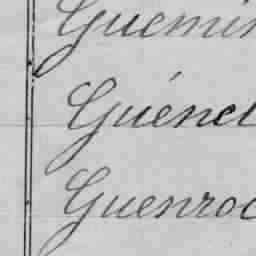 Guemin
Guénel
Guenroc